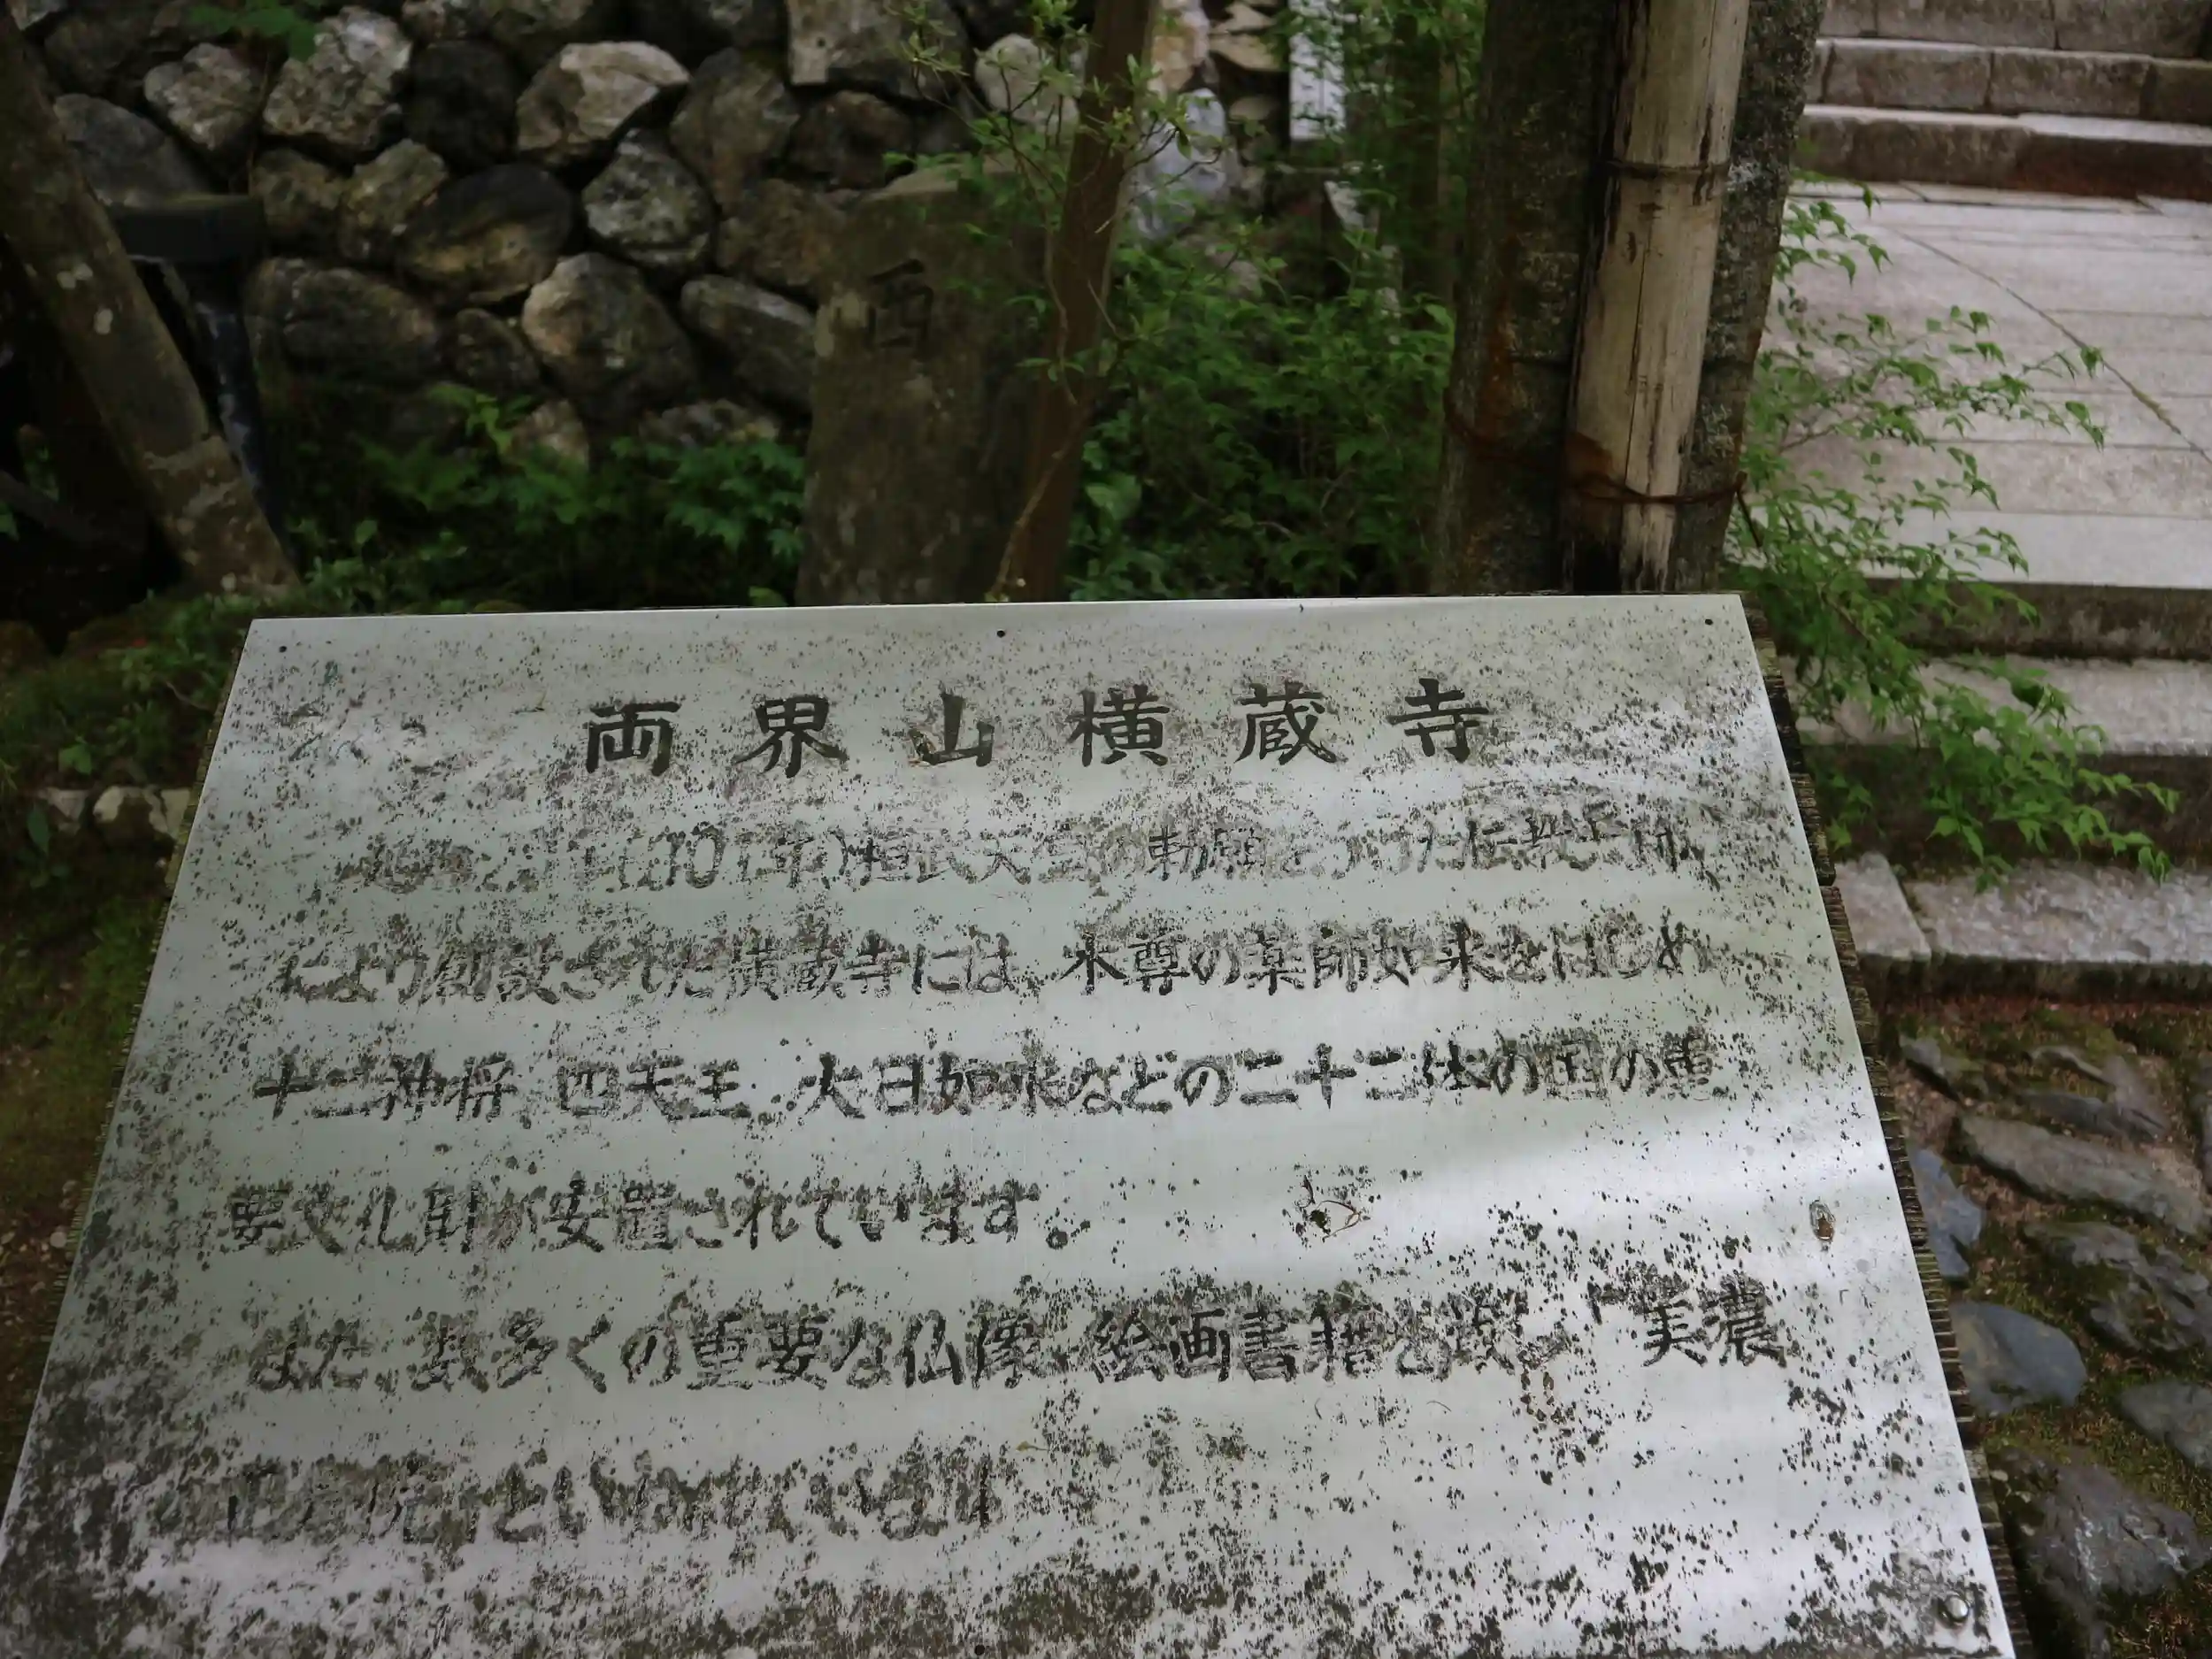 西
両界山横蔵寺
(801年)桓武天皇の勅願をうけた伝教大師
により創設された横蔵寺には、本尊の薬師如来をはじめ
十二神将、四天王、大日如来などの二十二体の国の重
要文化財が安置されています。
また、数多くの重要な仏像、絵画書籍を蔵し「美濃
の正倉院」といわれています